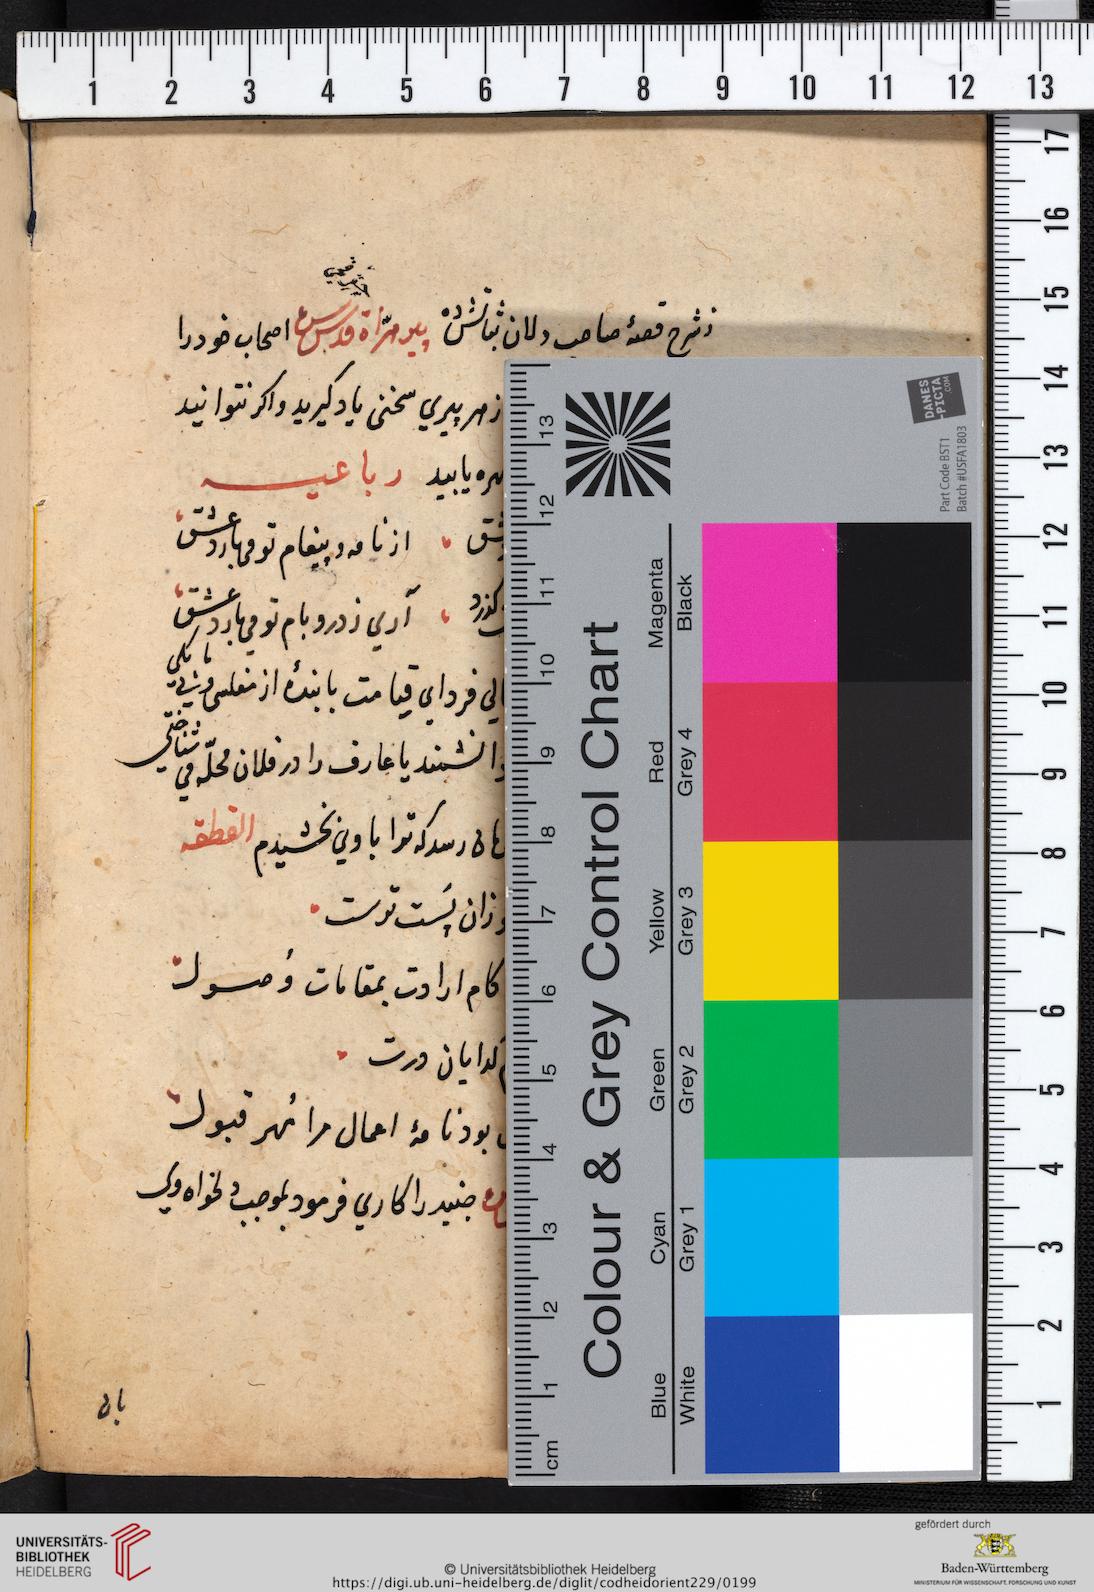 زشرح قصهٔ صاحب دلان ثباتش ده پیر هراة قدس سره اصحاب خود را
از هر پیری سخنی یاد کیرید و اکر نتوانید
بهره یابید رباعیه
از نامه و پیغام تو می بارد عشق
کذرد آری ز در و بام تو می بارد عشق
فردای قیامت با بندهٔ از مفلسی و بی مایکی
دانشمند یا عارف را در فلان محلّه می شناختی
رسد که ترا با وی بخشیدم القطعه
وزان پست تو ست
کام ارادت بمقامات وصول
کدایان درت
بود نامهٔ اعمال مرا مهر قبول
جنید را کاری فرمود بموجب دلخواه وی
بای
1 2 3 4 5 6 7 8 9 10 11 12 13
17 16 15 14 13 12 11 10 9 8 7 6 5 4 3 2 1
DANES-PICTA.COM
Part Code BST1
Batch #USFA1803
Colour & Grey Control Chart
Blue Cyan Green Yellow Red Magenta
White Grey 1 Grey 2 Grey 3 Grey 4 Black
cm 1 2 3 4 5 6 7 8 9 10 11 12 13
UNIVERSITÄTS-
BIBLIOTHEK
HEIDELBERG
© Universitätsbibliothek Heidelberg
https://digi.ub.uni-heidelberg.de/diglit/codheidorient229/0199
gefördert durch
Baden-Württemberg
MINISTERIUM FÜR WISSENSCHAFT, FORSCHUNG UND KUNST